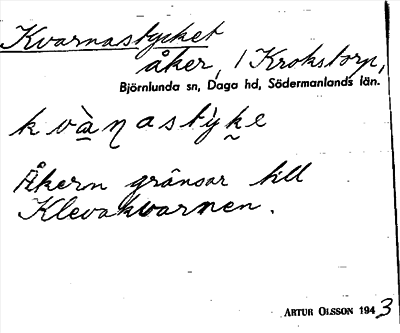 Kvarnastycket
åker, i Krokstorp,
Björnlunda sn, Daga hd, Södermanlands län.
kvànastỳke
Åkern gränsar till
Klevakvarnen.
ARTUR OLSSON 1943